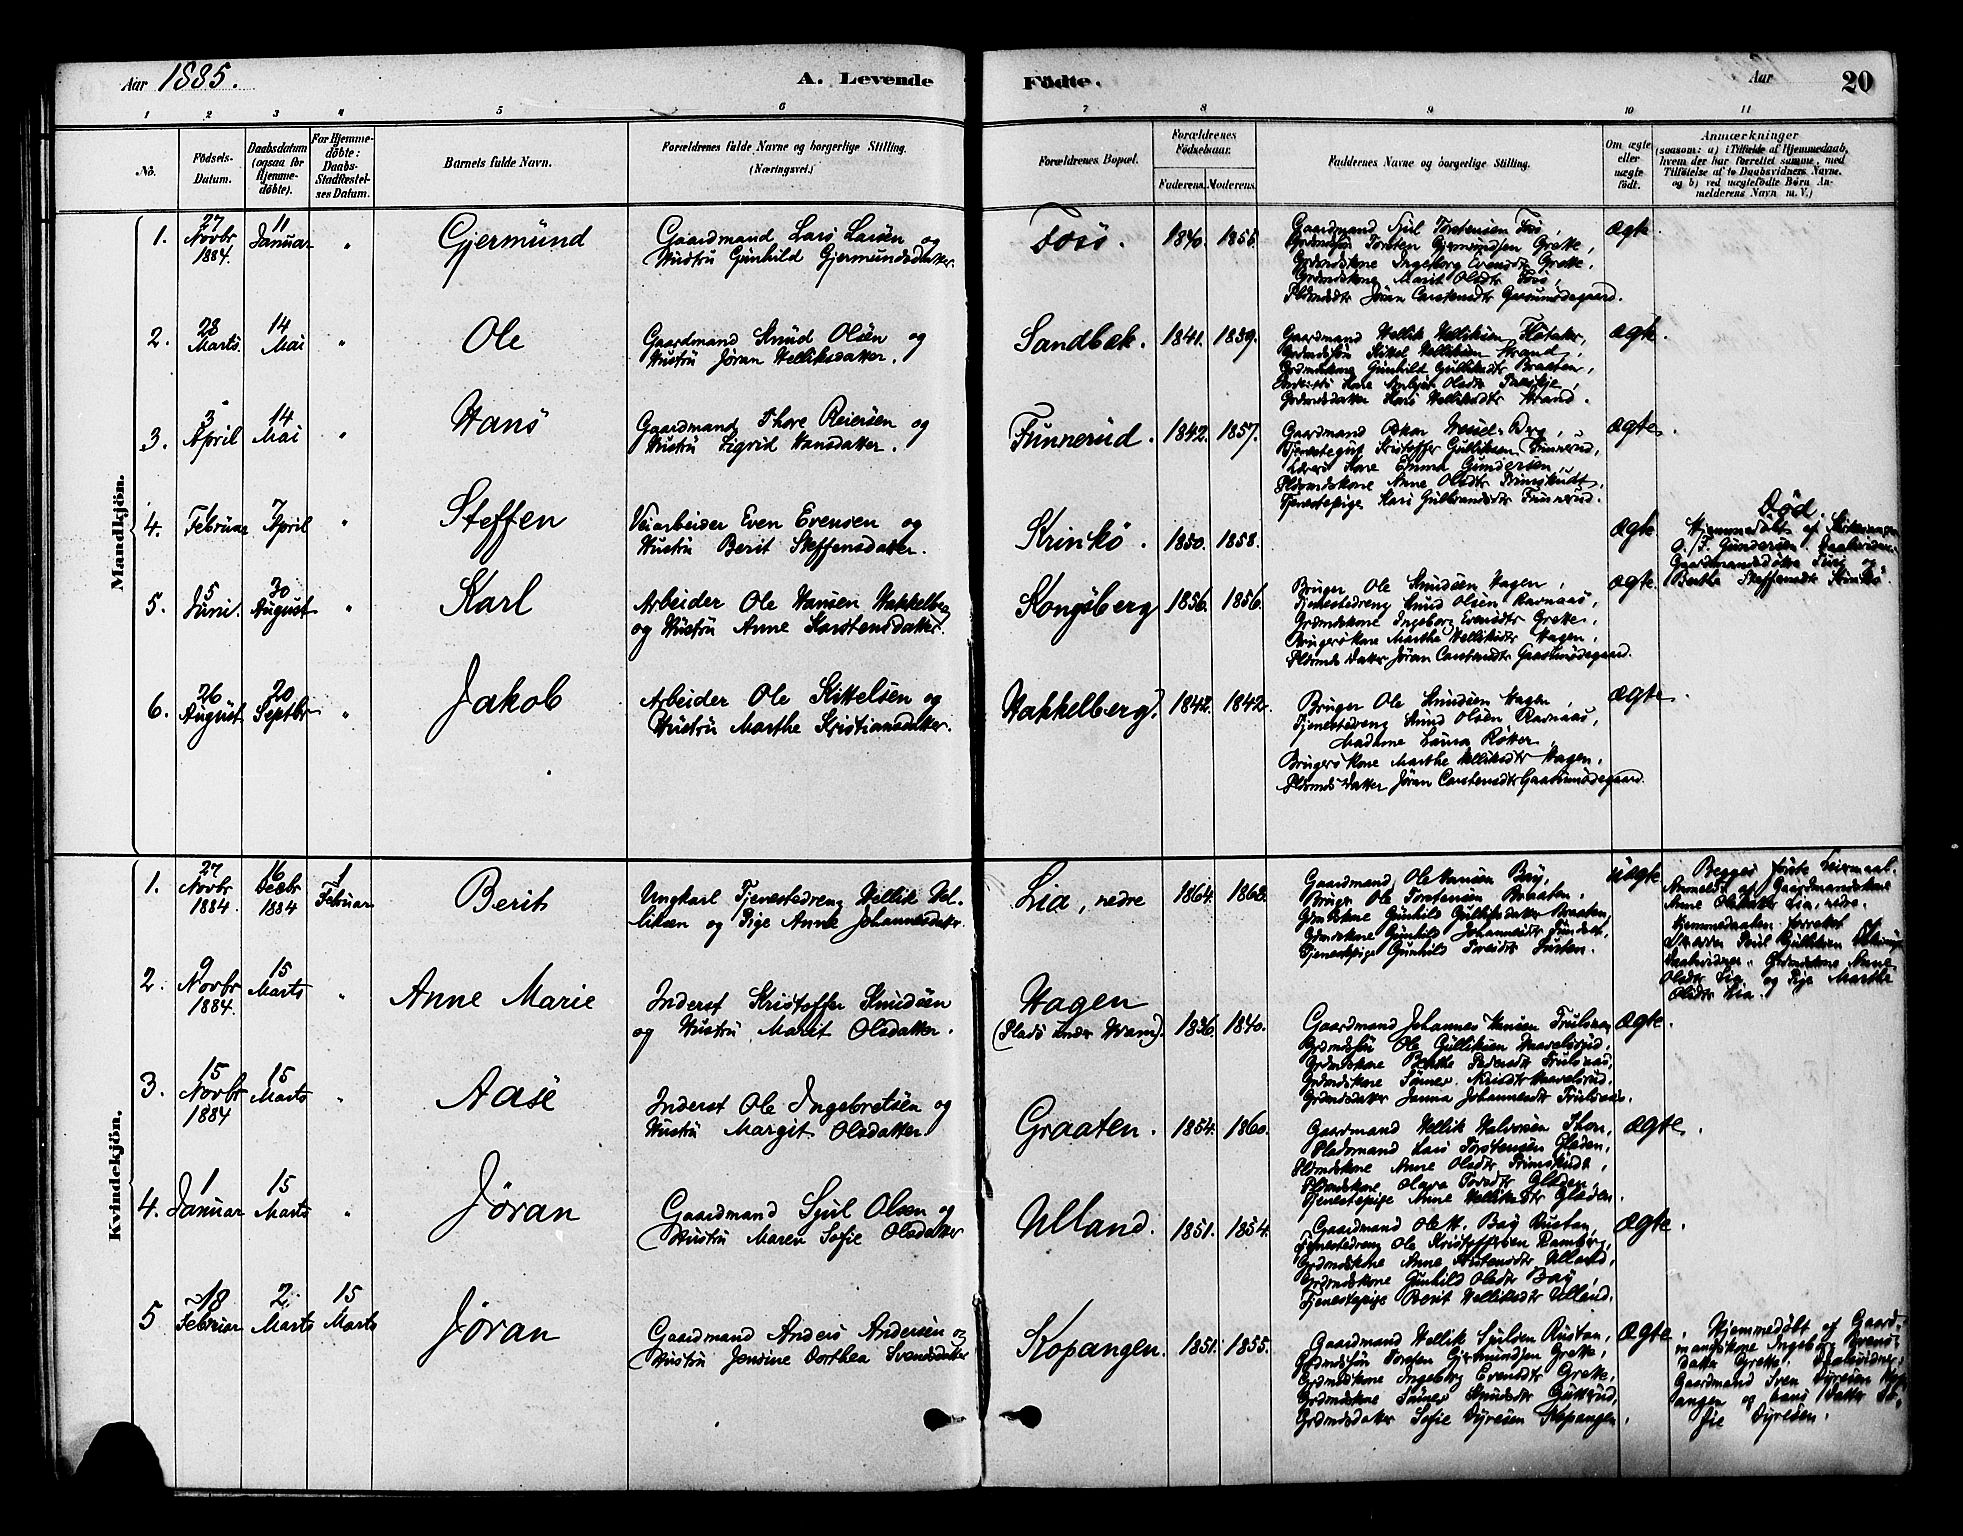 Aar 1885.
A. Levende
Födte.
Aar
20
1 2 3 4 5 6 7 8 9 10 11
No.
Födsels-Datum.
Daabsdatum (ogsaa for Hjemmedöbte).
For Hjemmedöbte: Daabs-Stadfæstelses Datum.
Barnets fulde Navn.
Forældrenes fulde Navne og borgerlige Stilling. (Næringsvei.)
Forældrenes Bopæl.
Forældrenes Födselsaar.
Faderens. Moderens.
Faddernes Navne og borgerlige Stilling.
Om ægte eller uægte födt.
Anmærkninger
(saasom: a) i Tilfælde af Hjemmedaab, hvem der har forrettet samme, med Tilföielse af to Daabsvidners Navne, og b) ved uægtefödte Börn Anmelderens Navn m. V.)
Mandkjön.
1. 27 Novbr 1884. 11 Januar "
Gjermund
Gaardmand Lars Larsen og
Hustru Gunhild Gjermundsdatter.
Foss. 1840. 1855.
Gaardmand Sjul Torstensen Foss,
Grdmdsön Torsten Gjermundsen Grette,
Grdmdskone Ingeborg Evensdtr Grette,
Grdmdskone Marit Olsdtr Foss,
Plsdmdsdtr Jøran Carstensdtr
ægte.
2. 28 Marts. 14 Mai "
Ole
Gaardmand Knud Olsen og
Hustru Jøran Helliksdatter.
Sandbæk. 1841. 1839.
Gaardmand Hellik Helliksen
Grdmdsön Kittel Helliksen Strand,
Grdmdskone Gunhild Gulliksdtr Braaten,
Grdmdsdatter Kari Helliksdtr Strand.
ægte.
3. 3 April 14 Mai "
Hans
Gaardmand Thore Reiersen og
Hustru Sigrid Hansdatter.
Funnerud. 1842. 1857.
Gaardmand Oskar
Tjenestegut Kristoffer Gulliksen Funnerud,
Lærers Kone Emma Gundersen,
Pldsmdskone Anne Olsdtr
Tjenestepige Kari Gulbrandsdtr Funnerud.
ægte.
4. 1 Februar 7 April "
Steffen
Veiarbeider Even Evensen og
Hustru Berit Steffensdatter.
Krinkö. 1850. 1858.
ægte.
Död.
Hjemmedöbt af
O. F. Gundersen.
og
Berthe Steffensdtr
5. 5 Juni. 30 August "
Karl
Arbeider Ole Hansen Hakkelberg
og Hustru Anne Karstensdatter.
Kongsberg 1856. 1856.
Bruger Ole Knudsen Hagen,
Tjenestedreng Knud Olsen Ravnaas,
Grdmdskone Ingeborg Evensdtr Grette,
Brugerskone Marthe Helliksdtr Hagen,
Pldsmds Datter Jøran Carstensdtr
ægte.
6. 26 August 20 Septbr "
Jakob
Arbeider Ole Kittelsen og
Hustru Marthe Kristiansdatter.
Hakkelberg. 1842. 1842.
Bruger Ole Knudsen Hagen,
Tjenestedreng Knud Olsen Ravnaas,
Madame Laura Røtter
Brugerskone Marthe Helliksdtr Hagen,
Pldsmds Datter Jøran Carstensdtr
ægte.
Kvindekjön.
1. 27 Novbr 1884. 16 Decbr 1884 1 Februar
Berit
Ungkarl Tjenestedreng Hellik Hel-
liksen og Pige Anne Johannesdatter.
Lia, nedre 1864. 1863.
Gaardmand Ole Hansen Bay,
Bruger Ole Torstensen Braaten,
Grdmdskone Gunhild Gulliksdatter Braaten,
Grdmdskone Gunhild Johannesdtr
Tjenestepige Gunhild
uægte
Begges förste Leiermaal.
Anmeldt af Gaardmandskone
Anne Olsdatter Lia, nedre.
Hjemmedaaben forrettet af
Daabsvidner: Grdmdskone Anne
Olsdtr Lia og Pige Marthe
Olsdtr Lia.
2. 9 Novbr 1884. 15 Marts "
Anne Marie
Inderst Kristoffer Knudsen
og Hustru Marit Olsdatter.
Hagen
(Plads under Wram). 1836. 1840.
Gaardmand Johannes Hansen
Grdmdsön Ole Gulliksen
Grdmdskone Berthe Pedersdtr
Grdmdsdatter Johannesdtr
ægte.
3. 15 Novbr 1884 15 Marts "
Aase
Inderst Ole Ingebretsen og
Hustru Margit Olsdatter
Graaten. 1854. 1860.
Gaardmand Hellik Halvorsen Thon,
Pladsmand Lars Torstensen Glæden,
Pldsmdskone Anne Olsdtr
Pldsmdskone Olava
Tjenestepige Anne Helliksdtr Glæden.
ægte.
4. 1 Januar 15 Marts "
Jøran
Gaardmand Sjul Olsen og
Hustru Maren Sofie Olsdatter
Ulland. 1851. 1854.
Gaardmand Ole H. Bay Rustan,
Tjenestedreng Ole Kristoffersen
Grdmdskone Anne Ulland,
Grdmdskone Gunhild Olsdtr Bay,
Tjenestepige Berit Helliksdtr Ulland.
ægte.
5 18 Februar 2 Marts 15 Marts
Jøran
Gaardmand Anders Andersen og
Hustru Jensine Dorthea Svendsdatter
Kopangen. 1851. 1855.
Gaardmand Hellik Sjulsen Rustan,
Grdmdsön Torsten Gjermundsen Grette,
Grdmdskone Ingeborg Evensdtr Grette,
Grdmdskone Knudsdtr
Grdmdsdatter Sofie Syvesen Kopangen.
ægte.
Hjemmedöbt af Gaard-
mandskone Ingeborg Evens-
datter Grette. Daabsvidner:
Gaardmand Sven Syvesen Kop-
angen og hans Datter So-
fie Syvesen.